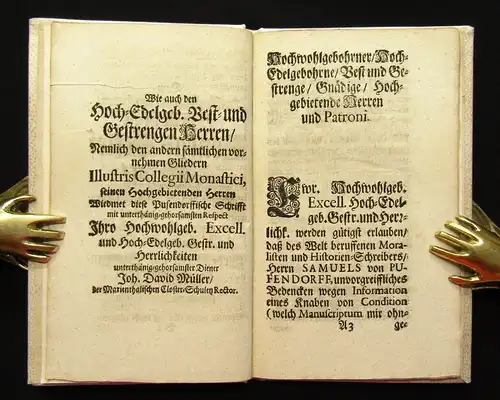 Wie auch den
Hoch-Edelgeb. Vest- und
Gestrengen Herren/
Nemlich den andern sämtlichen vor-
nehmen Gliedern
Illustris Collegii Monastici,
seinen Hochgebietenden Herren
Wiedmet diese Pufendorffische Schrifft
mit unterthänig-gehorsamsten Respect
Ihro Hochwohlgeb. Excell.
und Hoch-Edelgeb. Gestr. und
Herrlichkeiten
unterthänig-gehorsamster Diener
Joh. David Müller/
der Marienthalischen Closter-Schulen Rector.
Hochwohlgebohrner/Hoch-
Edelgebohrne/ Vest und Ge-
strenge/ Gnädige/ Hoch-
gebietende Herren
und Patroni.
Ewr. Hochwohlgeb.
Excell. Hoch-Edel-
geb. Gestr. und Herr-
lichk. werden gütigst erlauben/
daß des Welt beruffenen Mora-
listen und Historien-Schreibers/
Herrn SAMUELS von PU-
FENDORFF, unvorgreiffliches
Bedencken wegen Information
eines Knaben von Condition
(welch Manuscriptum mir ohn-
A3 ge-